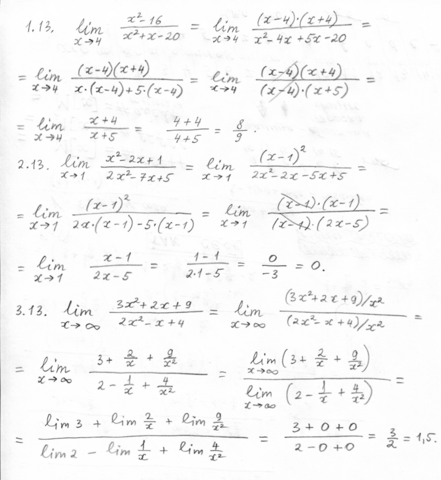 1.13. lim x→4 (x²-16)/(x²+x-20) = lim x→4 ((x-4)·(x+4))/(x²-4x+5x-20) =
= lim x→4 ((x-4)(x+4))/(x·(x-4)+5·(x-4)) = lim x→4 ((x-4)(x+4))/((x-4)·(x+5)) =
= lim x→4 (x+4)/(x+5) = (4+4)/(4+5) = 8/9.
2.13. lim x→1 (x²-2x+1)/(2x²-7x+5) = lim x→1 (x-1)²/(2x²-2x-5x+5) =
= lim x→1 (x-1)²/(2x·(x-1)-5·(x-1)) = lim x→1 ((x-1)·(x-1))/((x-1)·(2x-5)) =
= lim x→1 (x-1)/(2x-5) = (1-1)/(2·1-5) = 0/-3 = 0.
3.13. lim x→∞ (3x²+2x+9)/(2x²-x+4) = lim x→∞ ((3x²+2x+9)/x²)/((2x²-x+4)/x²) =
= lim x→∞ (3+2/x+9/x²)/(2-1/x+4/x²) = (lim x→∞ (3+2/x+9/x²))/(lim x→∞ (2-1/x+4/x²)) =
= (lim 3 + lim 2/x + lim 9/x²)/(lim 2 - lim 1/x + lim 4/x²) = (3+0+0)/(2-0+0) = 3/2 = 1,5.